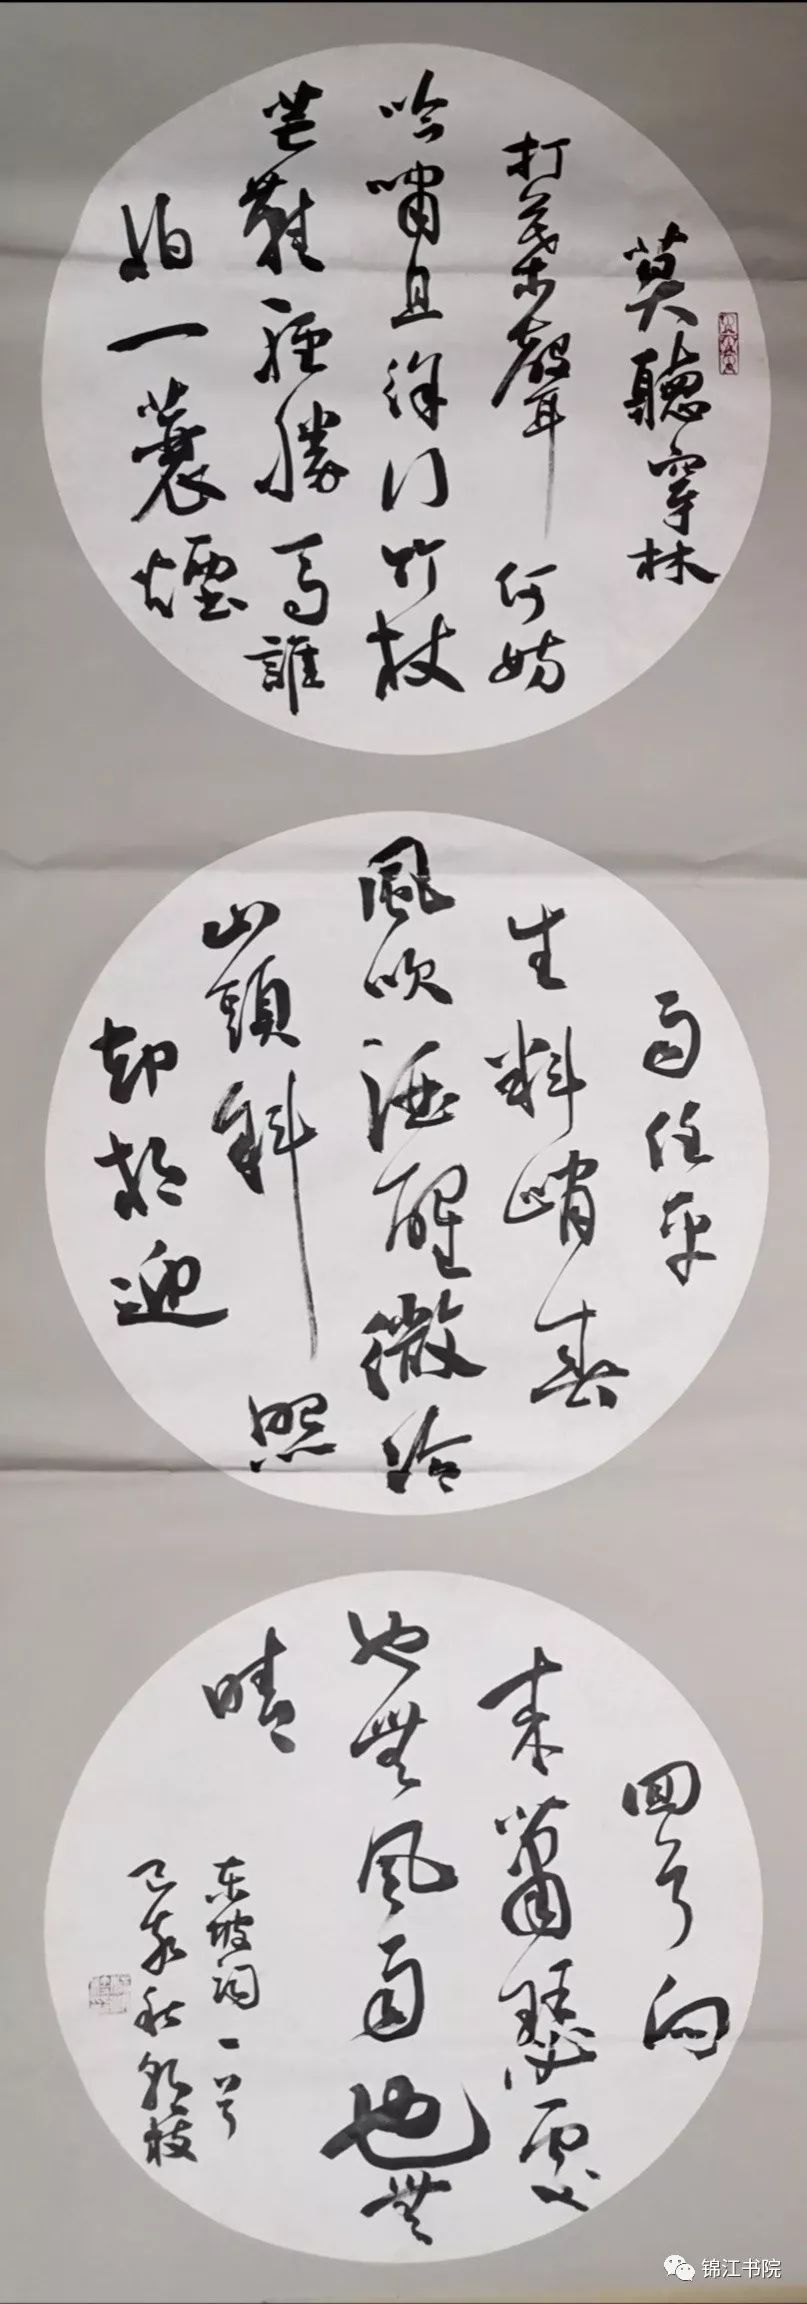 莫聽穿林
打葉聲何妨
吟嘯且徐行竹杖
芒鞋輕勝馬誰
怕一蓑煙
雨任平
生料峭春
風吹酒醒微冷
山頭斜照
却相迎
回首向
来蕭瑟處
也無風雨也無
晴
东坡词一首
己亥秋
锦江书院